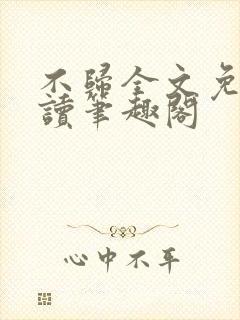 不歸全文免
讀筆趣閣
心中不平